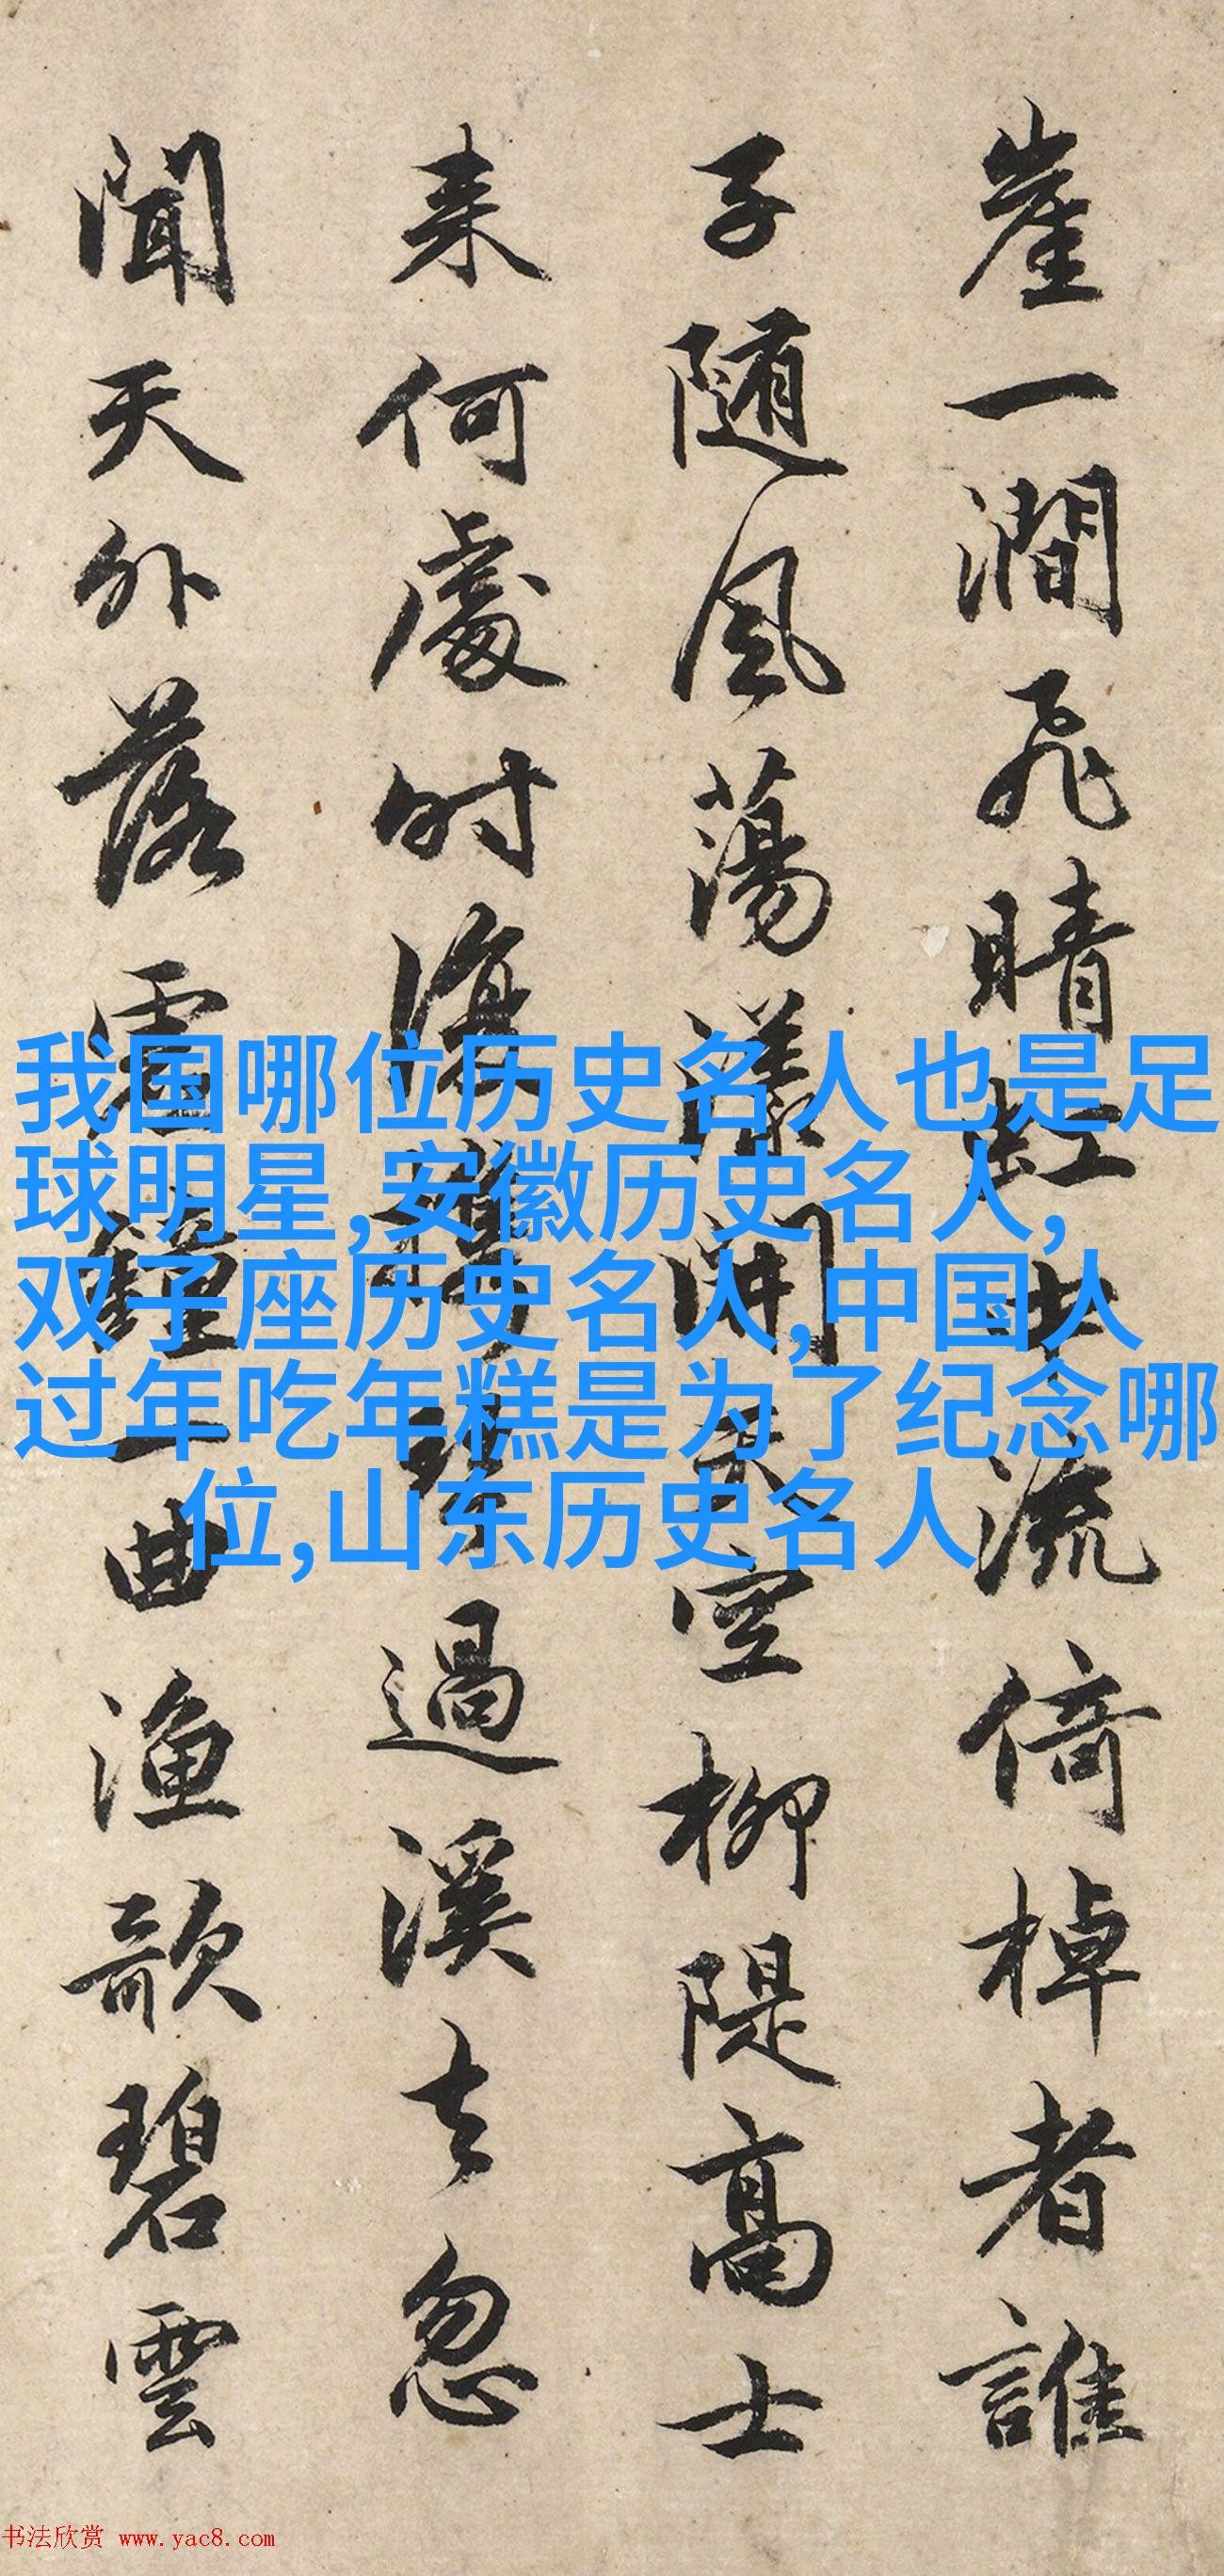 崖一澗飛晴虹中流倚棹者誰
子随風蕩漾開天空柳隄高士
来何處时復攜琴過溪去忽
聞天外落鐘一曲漁歌碧雲
我国哪位历史名人也是足
球明星,安徽历史名人,
双子座历史名人,中国人
过年吃年糕是为了纪念哪
位,山东历史名人
书法欣赏 www.yac8.com